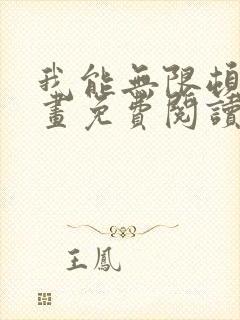 我能無限頓
畫免費閱讀
王鳳